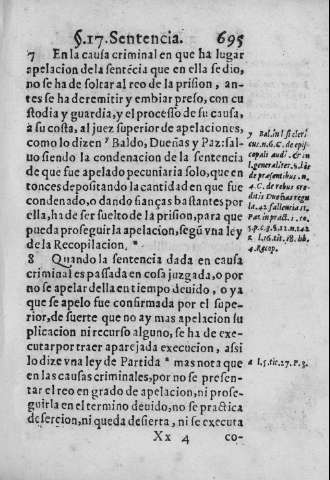 §.17. Sentencia. 695
7 En la causa criminal en que ha lugar
apelacion de la sentẽcia que en ella se dio,
no se ha de soltar al reo de la prision, an-
tes se ha de remitir y embiar preso, con cu
stodia y guardia, y el processo de su causa,
à su costa, al juez superior de apelaciones,
como lo dizen y Baldo, Dueñas y Paz: sal-
uo siendo la condenacion de la sentencia
de que fue apelado pecuniaria solo, que en
tonces depositando la cantidad en que fue
condenado, o dando fianças bastantes por
ella, ha de ser suelto de la prision, para que
pueda proseguir la apelacion, segũ vna ley
de la Recopilacion. z
8 Quando la sentencia dada en causa
criminal es passada en cosa juzgada, o por
no se apelar della en tiempo deuido, o ya
que se apelo fue confirmada por el supe-
rior, de suerte que no ay mas apelacion su
plicacion ni recurso alguno, se ha de exe-
cutar por traer aparejada execucion, assi
lo dize vna ley de Partida a mas nota que
en las causas criminales, por no se presen-
tar el reo en grado de apelacion, ni prose-
guirla en el termino deuido, no se practica
desercion, ni queda desierta, ni se executa
Xx 4 co-
y Bal. in l. si cleri
cus. n. 6. C. de epis-
copali audi. & in
l. generaliter. §. his
de præsentibus. n.
4. C. de rebus cre-
ditis Dueñas regu
la. 42. fallencia
Paz in pract. 1. to.
5. p. c. 3. §. 12. n.
z l. 16. tit. 18. lib.
4. Recop.
a l. 5. tit. 27. P. 3.